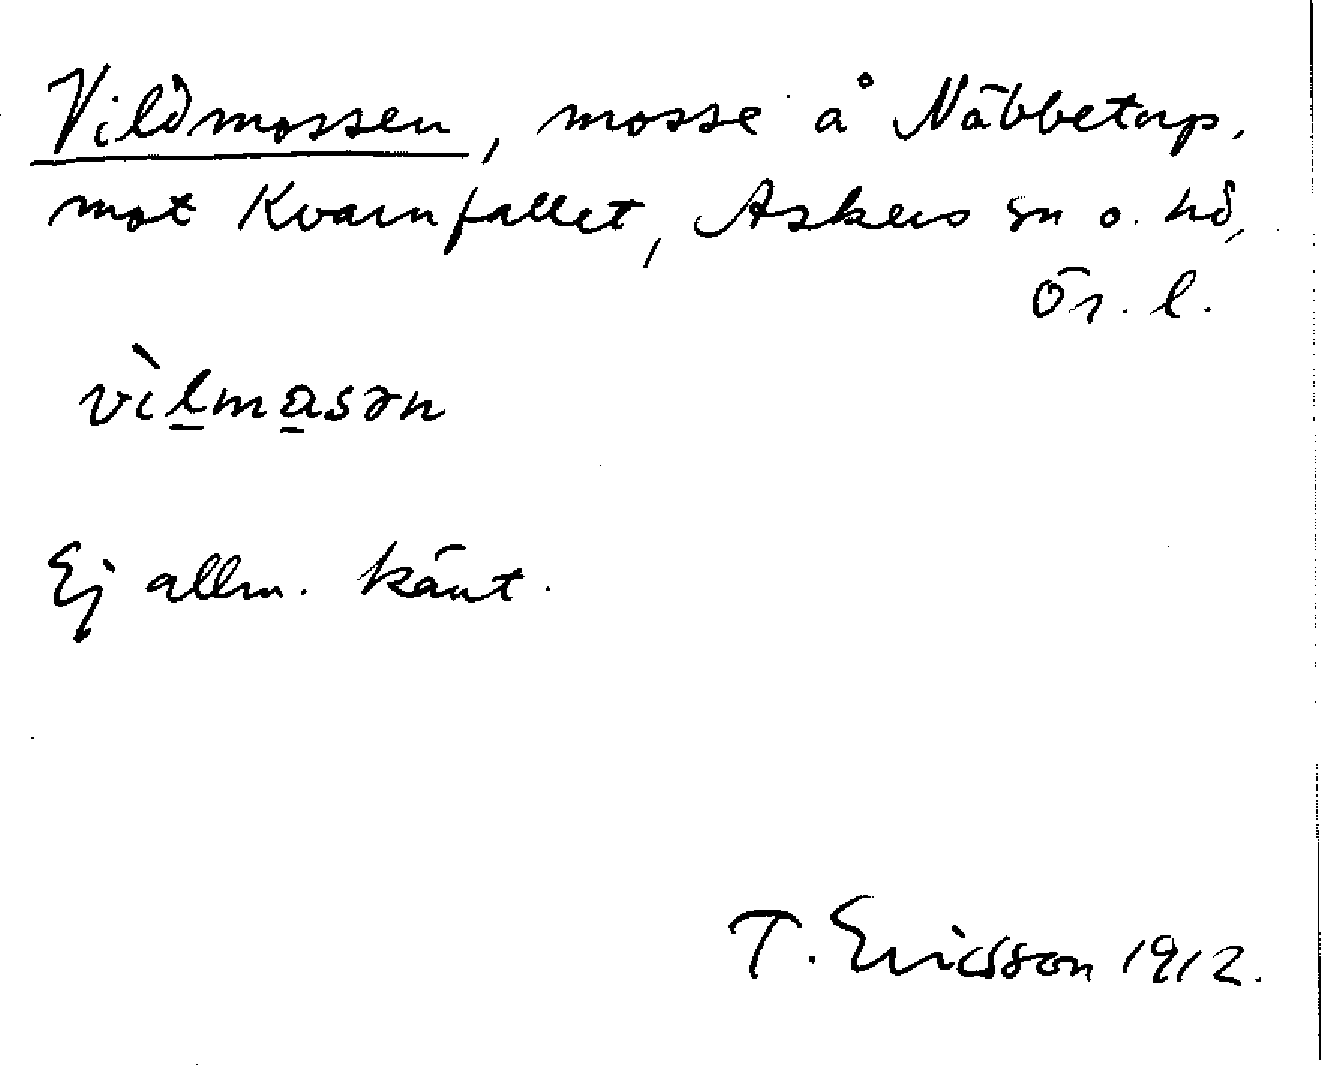 Vildmossen, mosse å Näbbetorp,
mot Kvarnfallet, Askers sn o. hd,
Ör. l.
vìlmasən
Ej allm. känt.
T. Ericsson 1912.